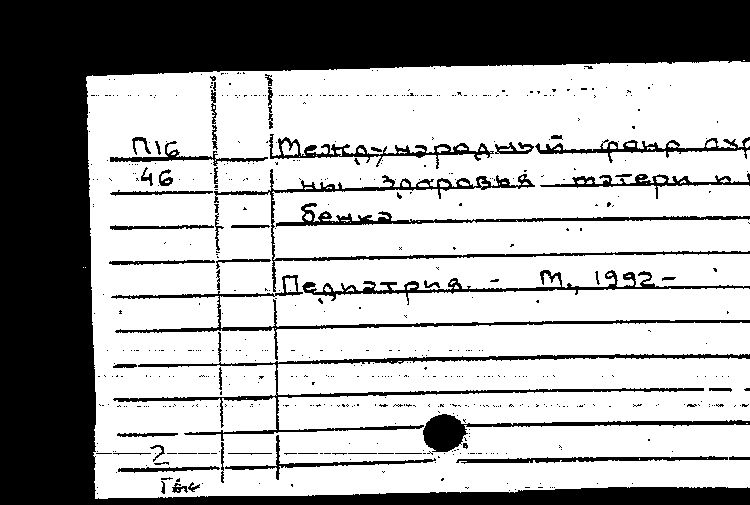 П16
46
Международный фонд охр
ны здоровья матери и р
бенка
Педиатрия. - М., 1992-
2